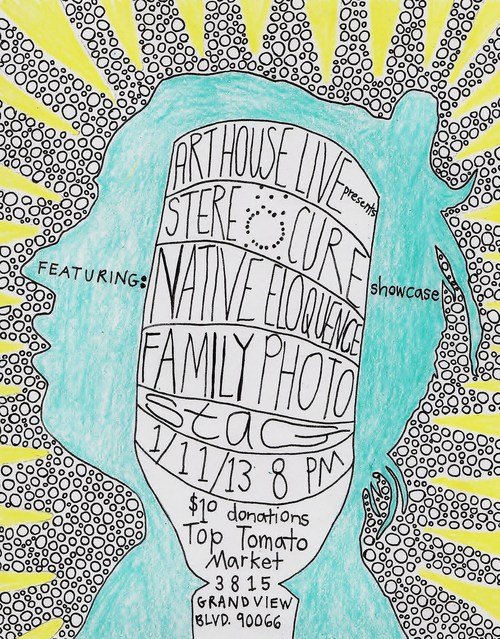 ART HOUSE LIVE
presents
STEREO CURE
showcase
FEATURING:
NATIVE ELOQUENCE
FAMILY PHOTO
StaG
1/11/13 8 PM
$10 donations
Top Tomato
Market
3815
GRANDVIEW
BLVD. 90066